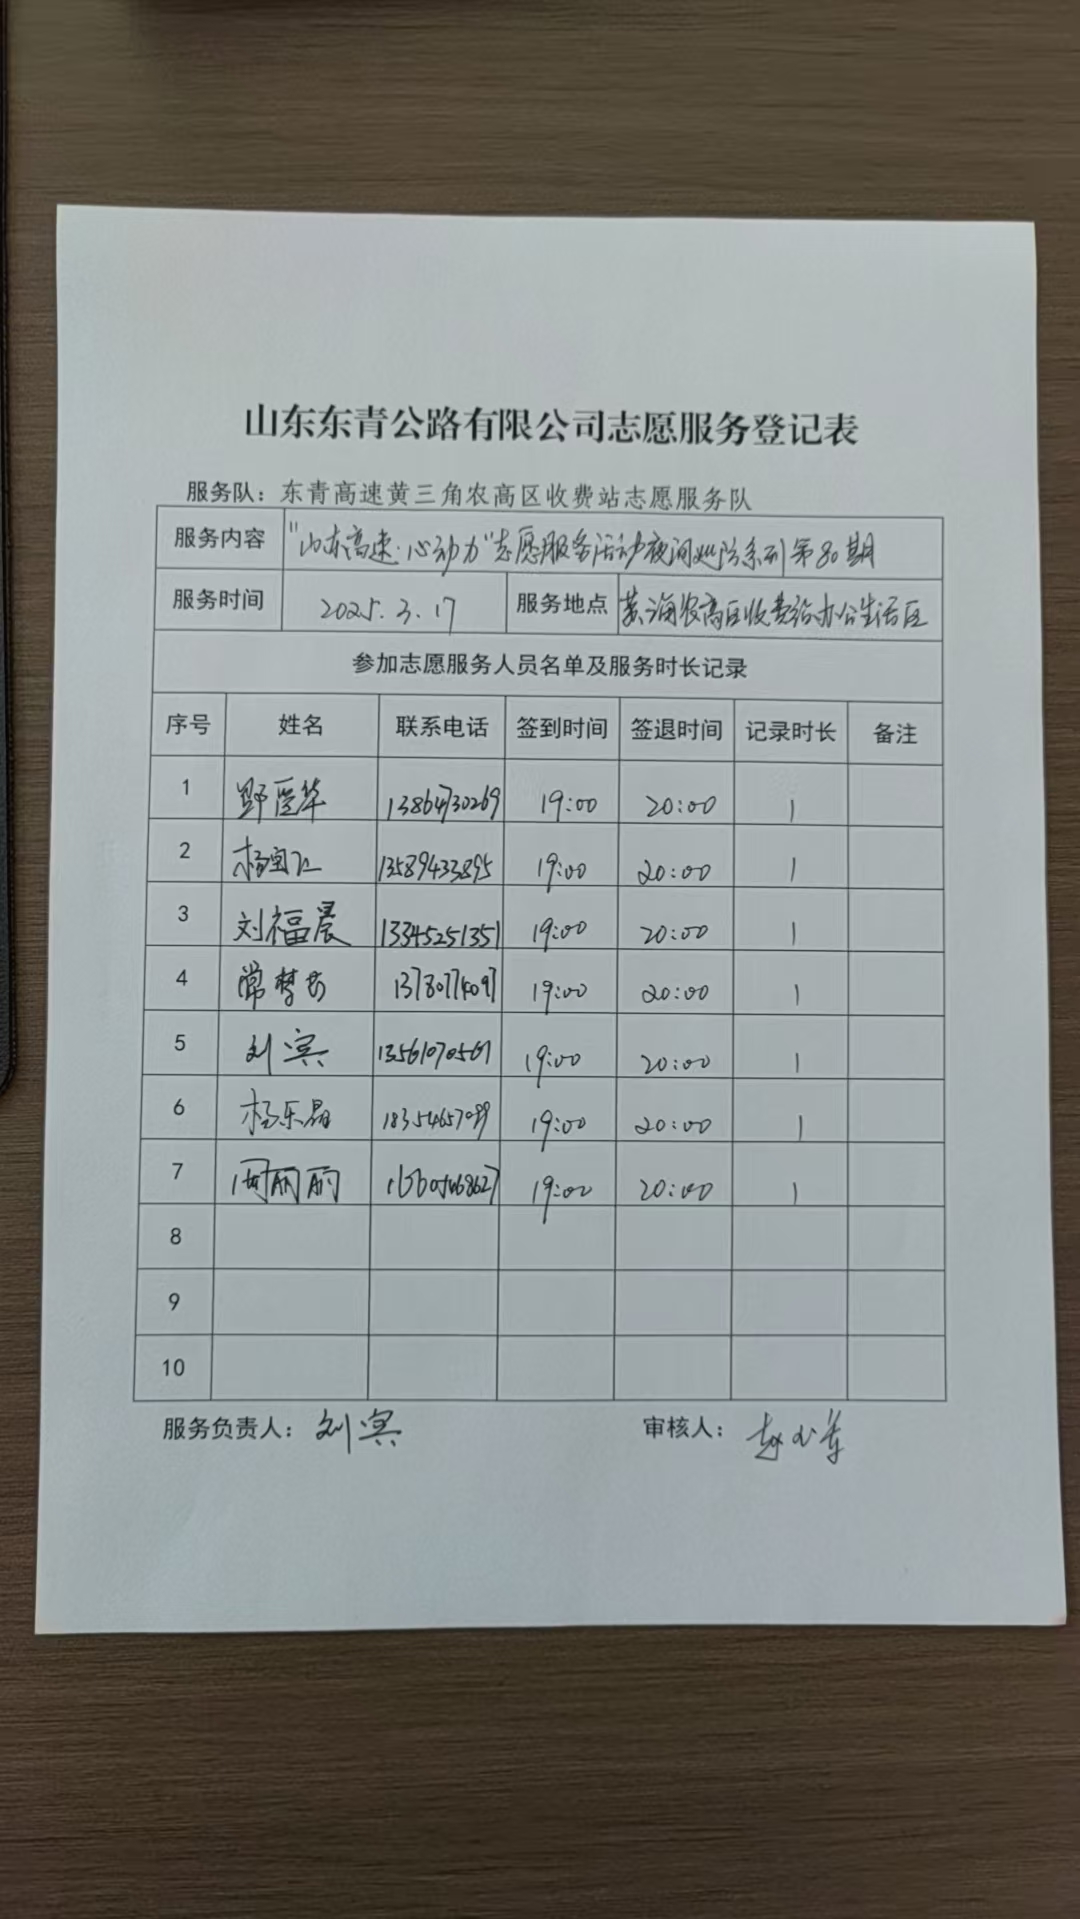 山东东青公路有限公司志愿服务登记表
服务队：东青高速黄三角农高区收费站志愿服务队
服务内容 "山东高速·心动力"志愿服务活动夜间巡防系列第80期
服务时间 2025.3.17 服务地点 农高区收费站办公生活区
参加志愿服务人员名单及服务时长记录
序号 姓名 联系电话 签到时间 签退时间 记录时长 备注
1 13864730269 19:00 20:00 1
2 13589433895 19:00 20:00 1
3 刘福晨 13345251351 19:00 20:00 1
4 常梦 13780774097 19:00 20:00 1
5 刘宾 13561070561 19:00 20:00 1
6 杨乐晶 19:00 20:00 1
7 周丽丽 19:00 20:00 1
8
9
10
服务负责人：刘宾 审核人：赵